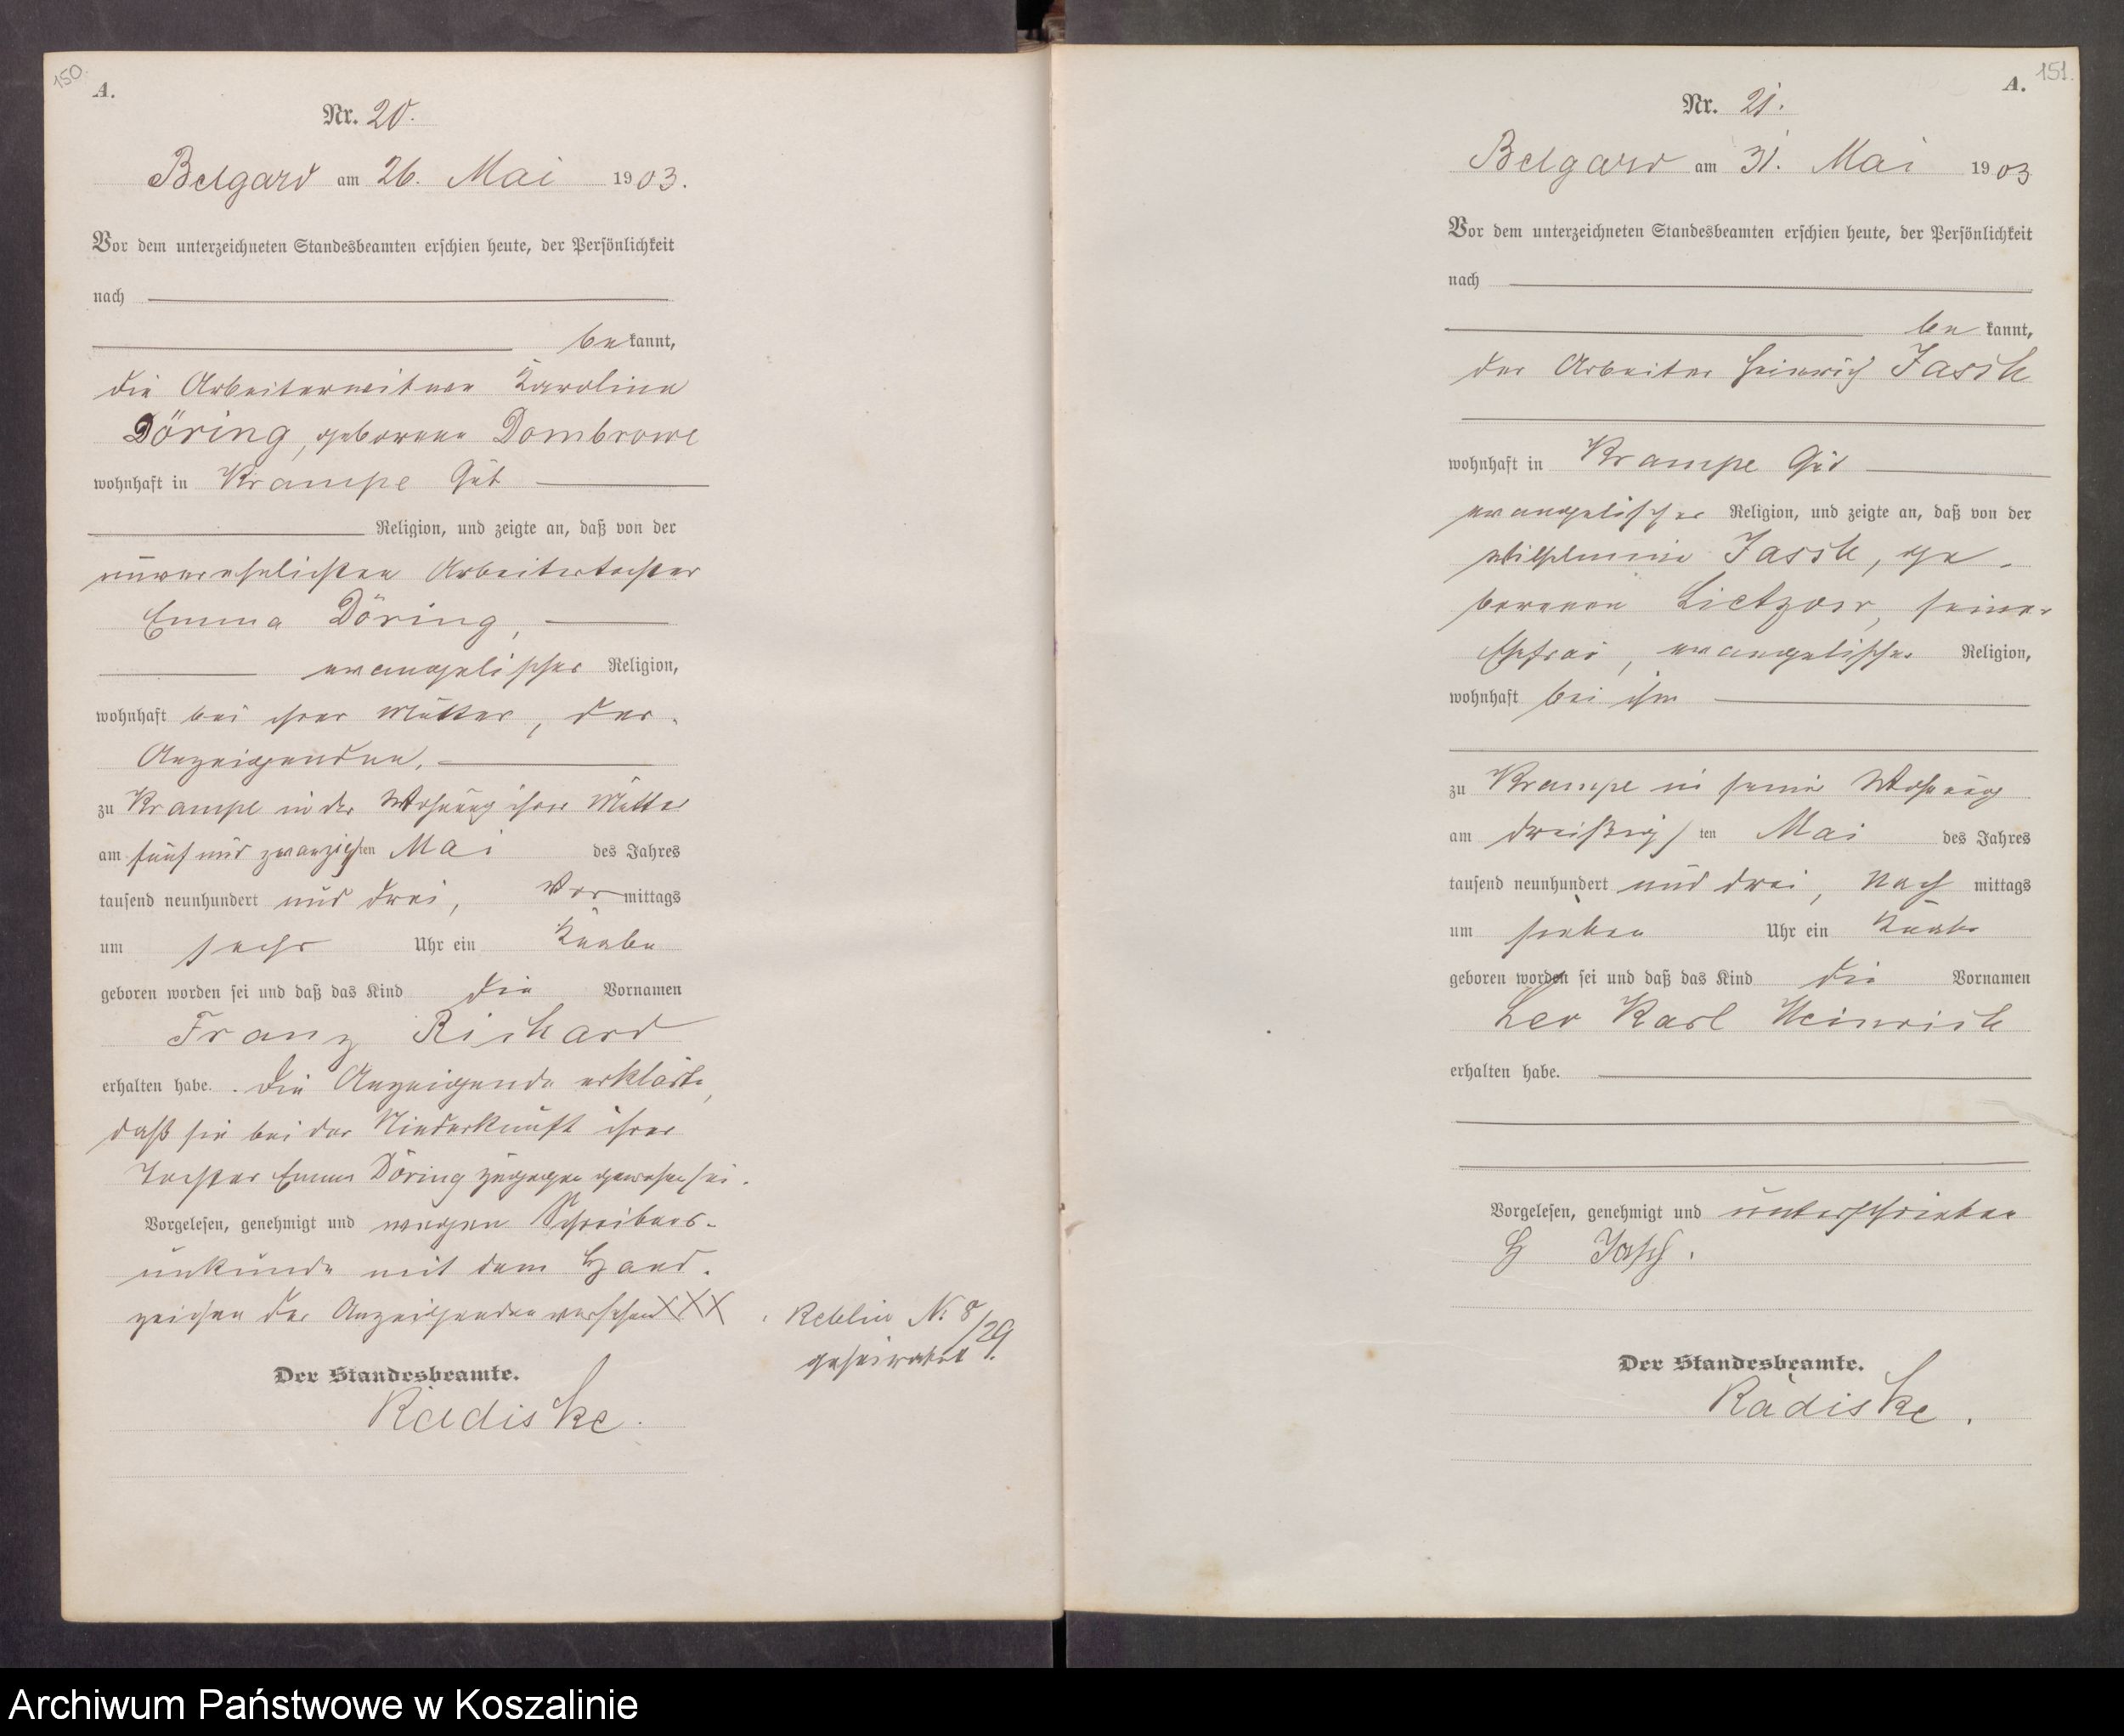 150.
A.
Nr. 20.
Belgard am 26. Mai 1903.
Vor dem unterzeichneten Standesbeamten erschien heute, der Persönlichkeit
nach
be kannt,
die Arbeiterwitwe Karoline
Döring, geborene Dombrowe
wohnhaft in Krampe Gut
Religion, und zeigte an, daß von der
unverehelichten Arbeitertochter
Emma Döring,
evangelischer Religion,
wohnhaft bei ihrer Mutter, der
Anzeigenden,
zu Krampe in der Wohnung ihrer Mutter
am fünf und zwanzigsten Mai des Jahres
tausend neunhundert und drei, Vor mittags
um sechs Uhr ein Knabe
geboren worden sei und daß das Kind die Vornamen
Franz Richard
erhalten habe. Die Anzeigende erklärte,
daß sie bei der Niederkunft ihrer
Tochter Emma Döring zugegen gewesen sei.
Vorgelesen, genehmigt und wegen Schreibens-
unkunde mit dem Hand-
zeichen der Anzeigenden versehen XXX
Der Standesbeamte.
Radiske.
Reblin N: 8/29
geheiratet.
151.
A.
Nr. 21.
Belgard am 31. Mai 1903
Vor dem unterzeichneten Standesbeamten erschien heute, der Persönlichkeit
nach
be kannt,
der Arbeiter Heinrich Jasch
wohnhaft in Krampe Gut
evangelischer Religion, und zeigte an, daß von der
Wilhelmine Jasch, ge-
borenen Lietzow, seiner
Ehefrau, evangelischer Religion,
wohnhaft bei ihm
zu Krampe in seiner Wohnung
am dreißigsten Mai des Jahres
tausend neunhundert und drei, Nach mittags
um sieben Uhr ein Knabe
geboren worden sei und daß das Kind die Vornamen
Leo Karl Heinrich
erhalten habe.
Vorgelesen, genehmigt und unterschrieben
H Jasch.
Der Standesbeamte.
Radiske.
Archiwum Państwowe w Koszalinie